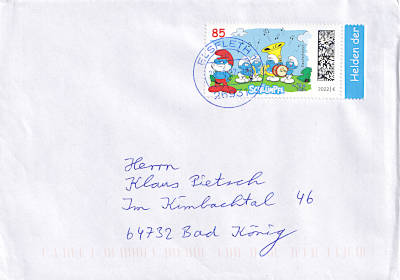 85
Helden der
ELSFLETH
SCHLÜMPFE
2022 | €
Herrn
Klaus Pietsch
Im Kimbachtal 46
64732 Bad König